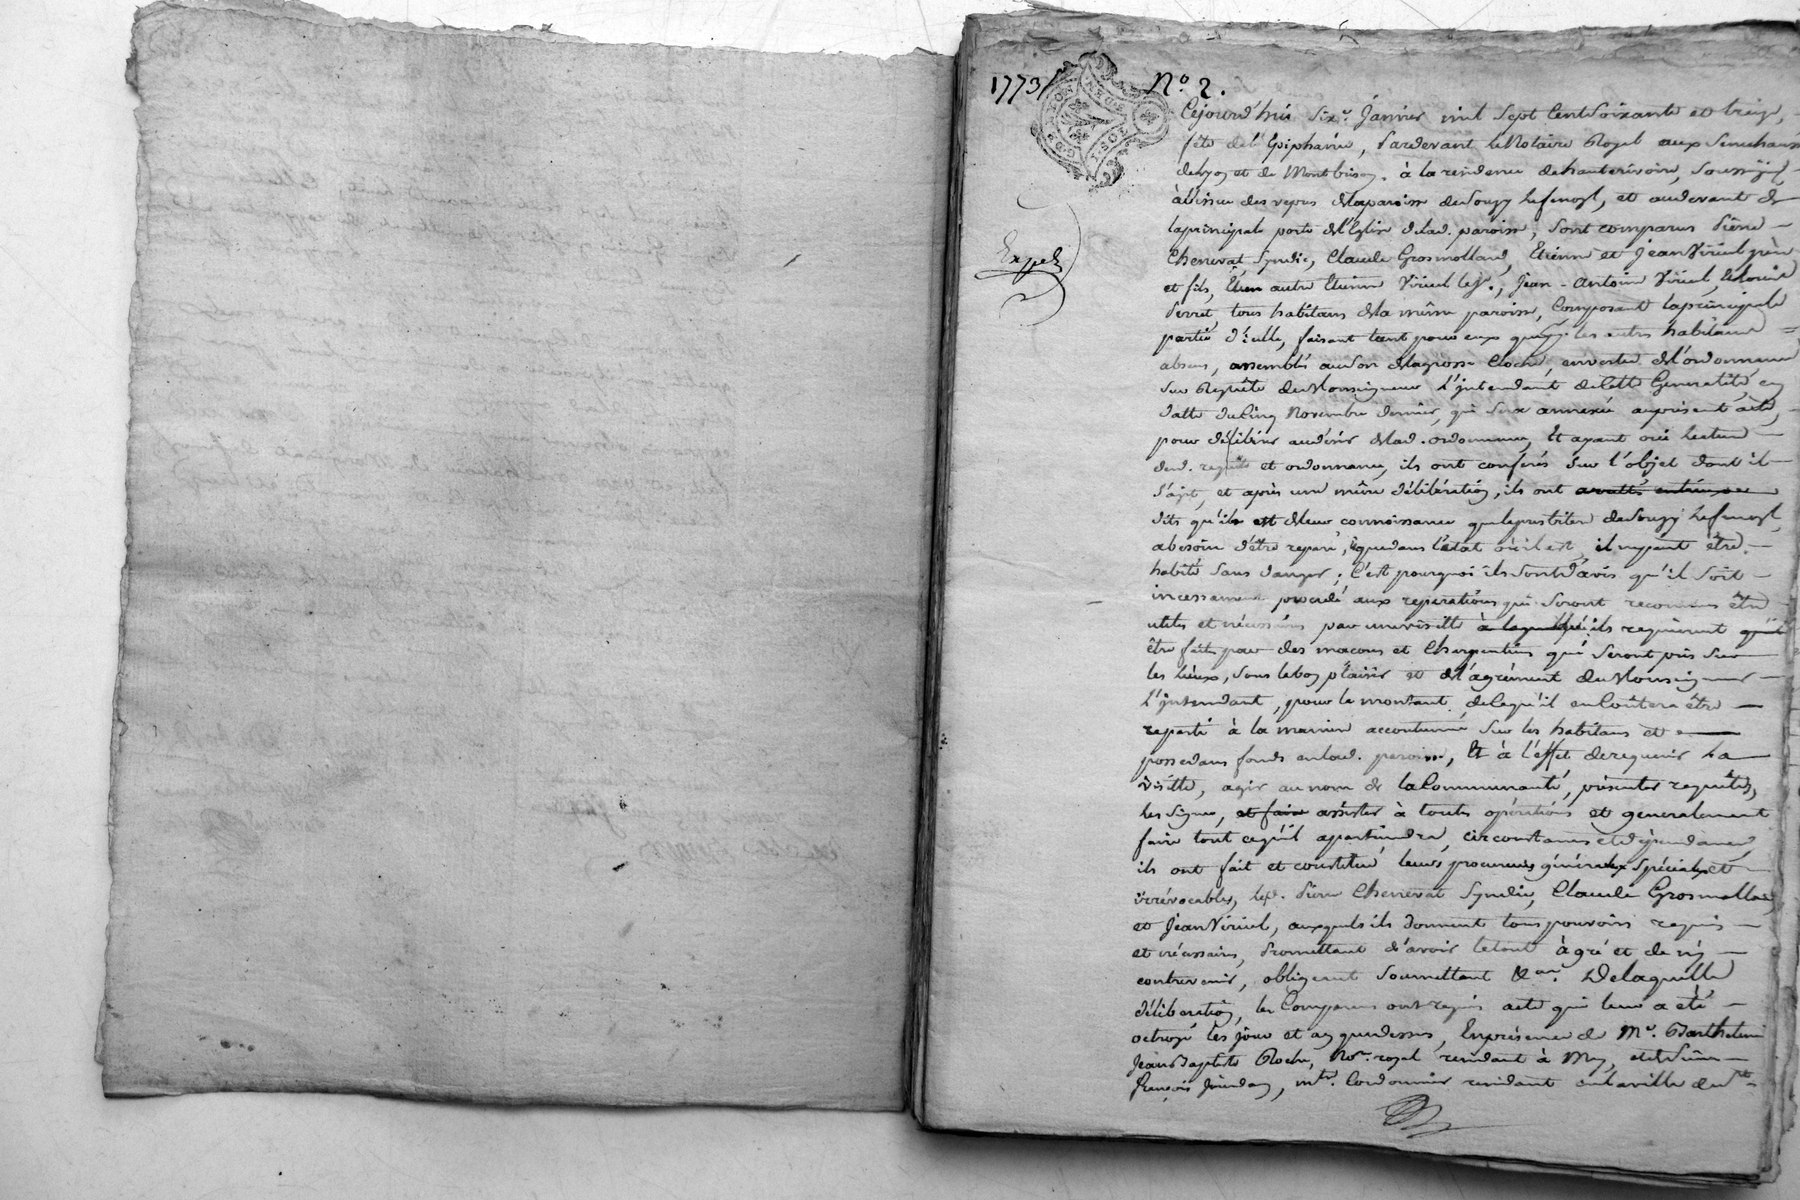 1773/
N.º 2.
Cejourd'hui six.e Janvier mil sept Cent soixante et treize,
fête de l'Epiphanie, Pardevant le Notaire Royal aux Senechaussé
de Lyon et de Montbrison, à la residence de hauterivoire, soussigné,
à l'issue des vepres de la paroisse de Souzy Lefenoyl, et audevant de
la principale porte de l'Eglise de lad. paroisse, sont comparus Pierre
Chenevat, Syndic, Claude Grosmollard, Etienne et Jean Viricel père
et fils, autre Etienne Viricel, Jean-Antoine Viricel,
Perret tous habitans de la même paroisse, Composant la principale
partie d'icelle, faisant tant pour eux que pr. les autres habitans
absens, assemblés au son de la grosse Cloche, en vertu de l'ordonnance
sur Requête de Monseigneur L'jntendant de cette Generalité, en
datte du Cinq Novembre dernier, qui sera annexée au présent acte,
pour délibérer au désir de lad. ordonnance, Et ayant ouï lecture
desd. requête et ordonnance, ils ont conférés sur l'objet dont il
s'agit, et après une mûre délibération, ils ont arrêtés entr'eux
dits qu'il est de leur connoissance que le presbitere de Souzy Lefenoyl,
a besoin d'être reparé, que dans l'état où il est, il ne peut être
habité sans danger; C'est pourquoi ils sont d'avis qu'il soit
incessament procedé aux reparations qui seront reconnues être
utiles et nécessaires par une visitte à laquelle ils requierent qu'il
être faite par des macons et Charpentiers qui seront pris sur
les lieux, sous le bon plaisir et de l'agrément de Monseigneur
L'jntendant, pour le montant de ce qu'il en Coûtera être
reparti à la maniere accoutumée sur les habitans et
possedans fonds en lad. paroisse, Et à l'effet de requerir La
visitte, agir au nom de la Communauté, présenter requêtes,
les signer, et faire assister à toutes opérations et generalement
faire tout ce qu'il apartiendra, circonstances et dépendances,
ils ont fait et constitué leurs procureurs généraux spéciaux et
irrévocables, led. Pierre Chenevat Syndic, Claude Grosmollard,
et Jean Viricel, auxquels ils donnent tous pouvoirs requis
et nécessaires, Promettant d'avoir le tout à gré et de n'y
contrevenir, obligeant soumettant &.a De laquelle
déliberation, les Comparans ont requis acte qui leur a été
octroyé les jour et an que dessus, En présence de M.e Barthelemi
Jean Baptiste Roche, No.re royal residant à Mey, et de Sieur
françois Jourdan, m.tre Cordonnier residant en la ville de
Exped.